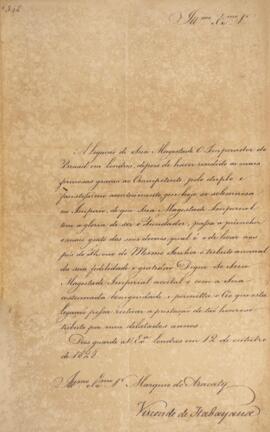 Illmo. Exmo. Sr.
A Legação de Sua Magestade O Imperador do
Brasil em Londres, depois de haver rendido as mais
graças ao Omnipotente, pelo duplo e
faustissimo anniversario, que hoje se solemnisa
no Imperio, de que Sua Magestade Imperial
tem a gloria de ser o Fundador, passa a preencher
o mais grato dos seus deveres, qual é o de levar aos
pés do Throno do Mesmo Senhor o tributo annual
da sua fidelidade e gratidão. Digne-se Sua
Magestade Imperial aceital-o com a Sua
costumada benignidade, e permitta o Ceo que esta
Legação possa reiterar a prestação de tão
tributo por mui dilatados annos.
Deus guarde a V. Exa. Londres em 12 de outubro
de 1828
Illmo. Exmo. Sr. Marquez do Aracaty
Visconde de Itabayana